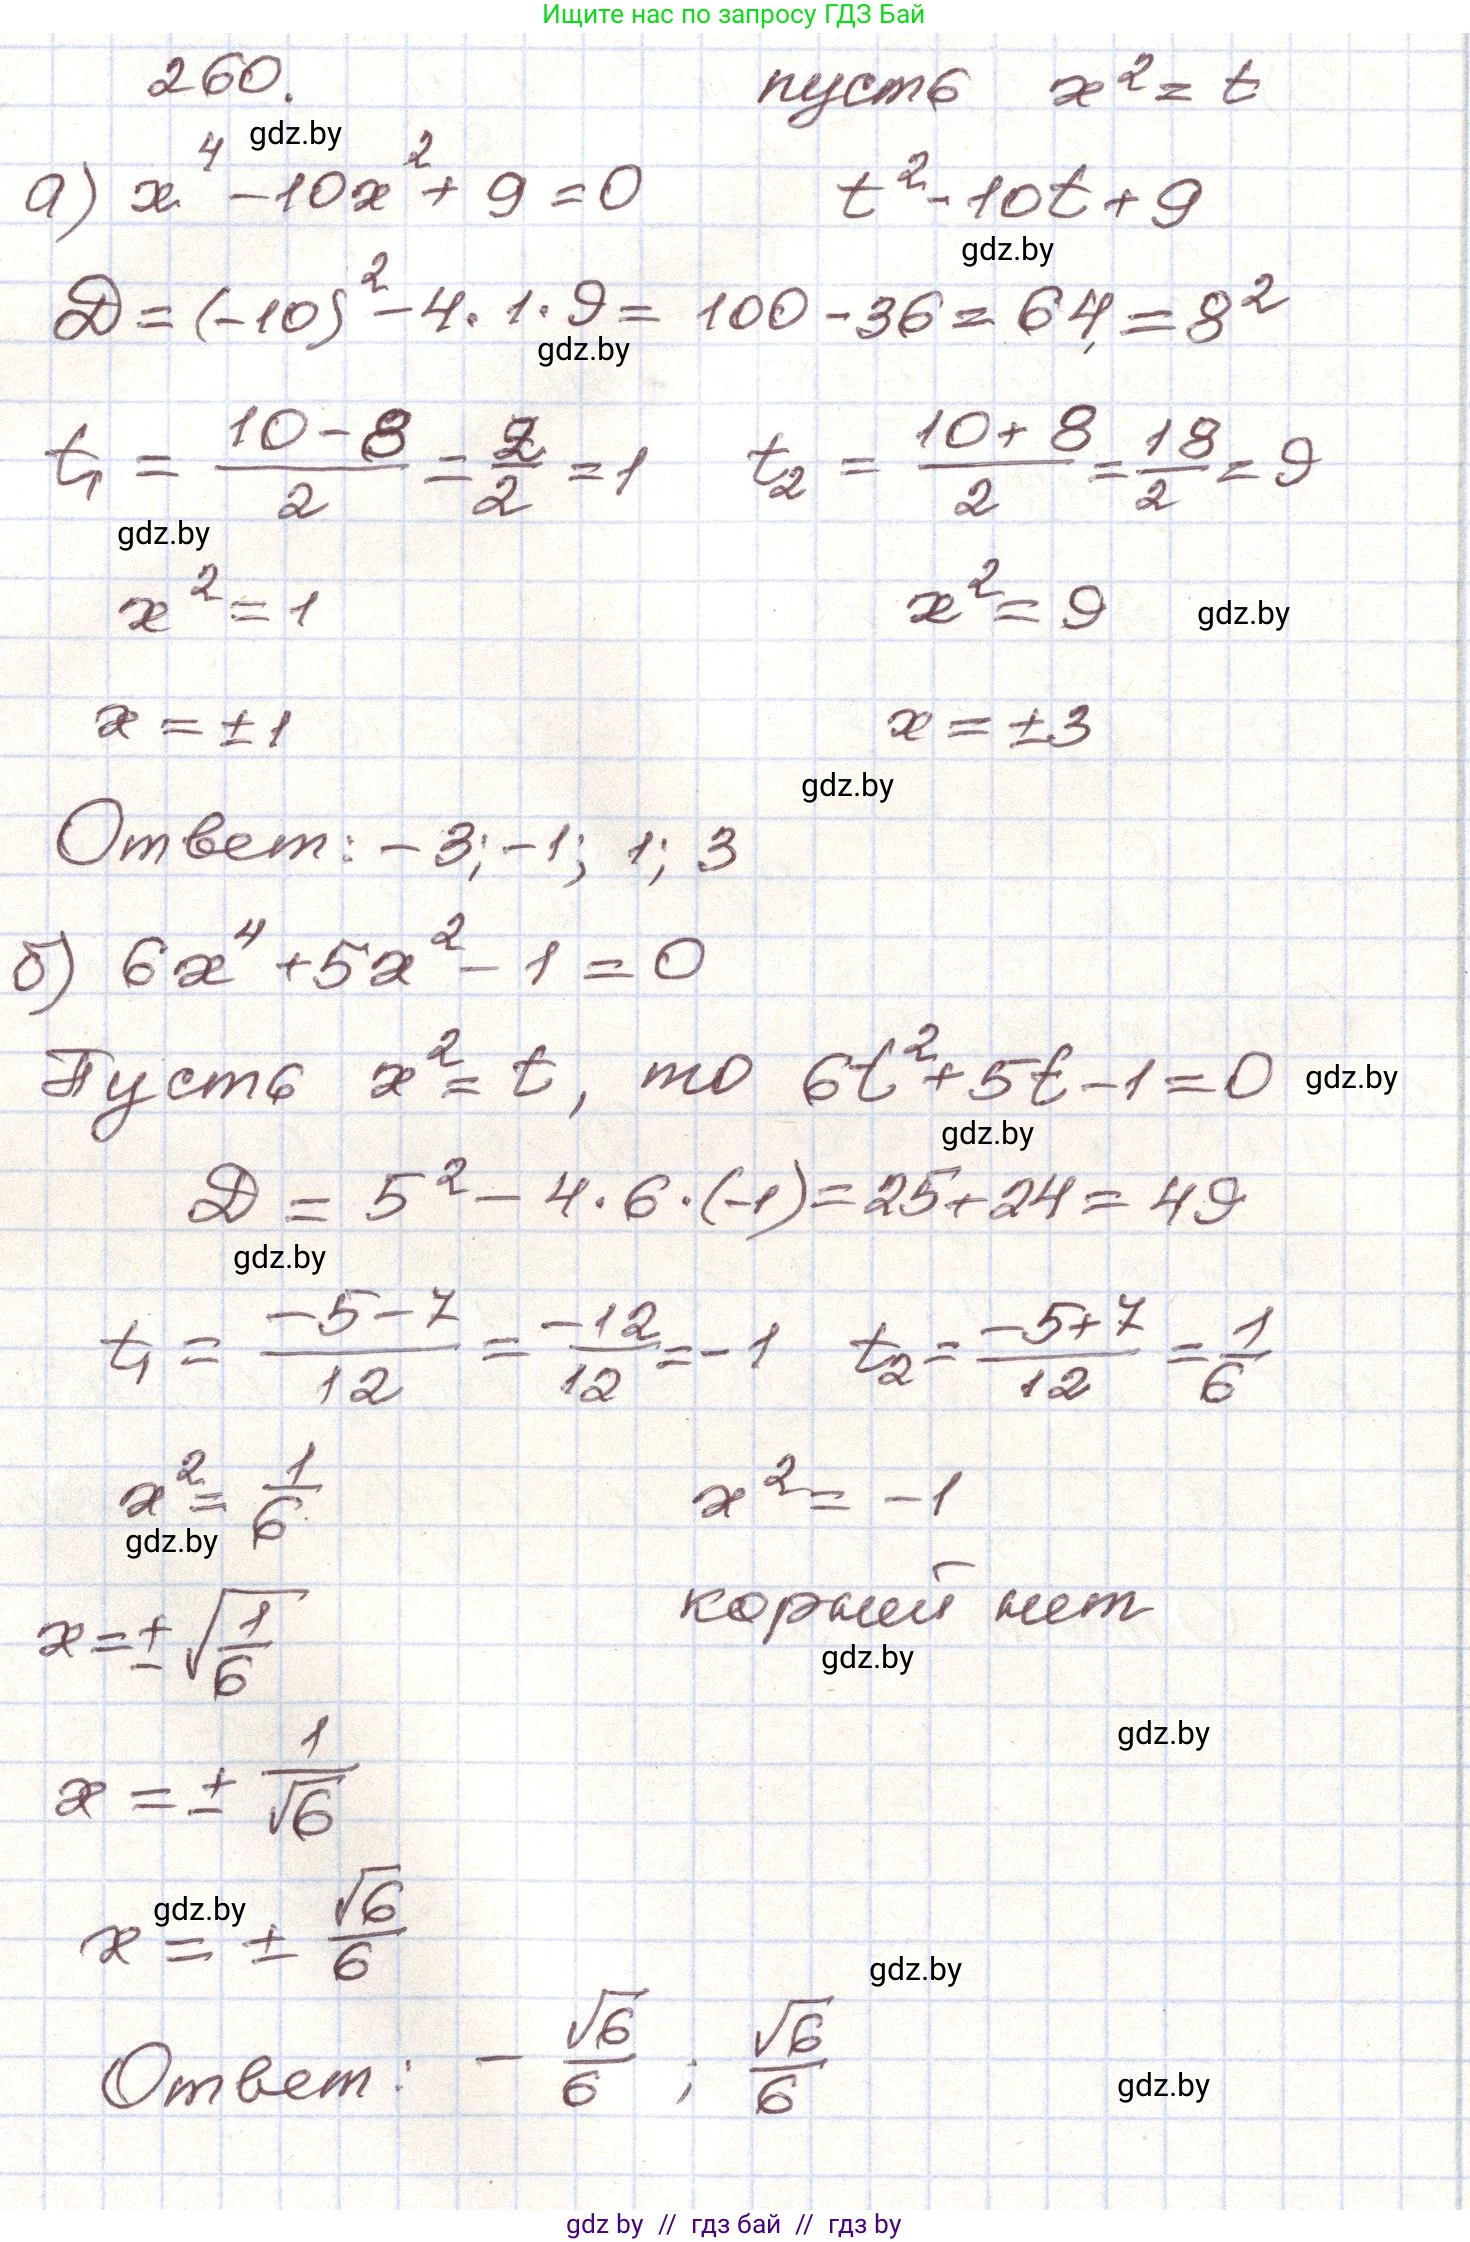 Ищите нас по запросу ГДЗ Бай
260. пусть x² = t
gdz.by
а) x⁴ - 10x² + 9 = 0 t² - 10t + 9
gdz.by
Д = (-10)² - 4 · 1 · 9 = 100 - 36 = 64, = 8²
gdz.by
t₁ = (10 - 8)/2 = 2/2 = 1 t₂ = (10 + 8)/2 = 18/2 = 9
gdz.by
x² = 1 x² = 9 gdz.by
x = ±1 x = ±3
gdz.by
Ответ: -3; -1; 1; 3
б) 6x⁴ + 5x² - 1 = 0
Пусть x² = t, то 6t² + 5t - 1 = 0 gdz.by
gdz.by
Д = 5² - 4 · 6 · (-1) = 25 + 24 = 49
gdz.by
t₁ = (-5 - 7)/12 = -12/12 = -1 t₂ = (-5 + 7)/12 = 1/6
x² = 1/6 x² = -1
gdz.by
x = ±√(1/6) корней нет
gdz.by
gdz.by
x = ± 1/√6
gdz.by
x = ± √6/6
gdz.by
Ответ: - √6/6 ; √6/6
gdz.by
gdz by // гдз бай // гдз by